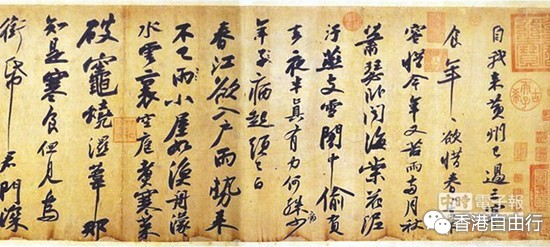 自我來黃州已過三
食年〻欲惜春
容惜今年又苦雨兩月秋
蕭瑟臥聞海棠花泥
汙燕支雪闇中偷負
去夜半真有力何殊少
病
年子病起頭已白
春江欲入戶雨勢來
不已雨小屋如漁舟濛〻
水雲裏空庖煮寒菜
破竈燒濕葦那
知是寒食但見烏
銜帋君門深
中時電子報
香港自由行